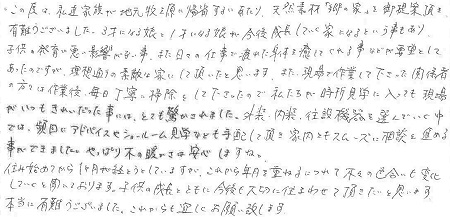 この度は、永連家族が地元牧之原に帰省するにあたり、天然素材「郷の家」を御提案頂き
有難うございました。3才になる娘と1才になる娘が今後成長していく家になるという事もあり、
子供の発育に悪い影響がない事、また日々の仕事で疲れた身体を癒してくれる事などが要望として
あったのですが、理想通りの素敵な家にして頂いたと思います。また、現場で作業して下さった関係者
の方々は作業後、毎日丁寧に掃除をして下さったので私たちが時折見学に入っても現場
がいつもきれいだった事には、とても驚かされました。外装、内装、住設機器を選んでいく中
では、頻回にアドバイスやショールーム見学なども手配して頂き家内ともスムーズに相談を進める
事ができました。やっぱり木の暖かさは安心しますね。
住み始めてから1ヶ月が経とうとしていますが、これから年月を重ねるにつれて木の色合いも変化
していくと聞いております。子供の成長とともに今後も大切に住まわせて頂きたいと思います。
本当に有難うございました。これからも宜しくお願い致します。